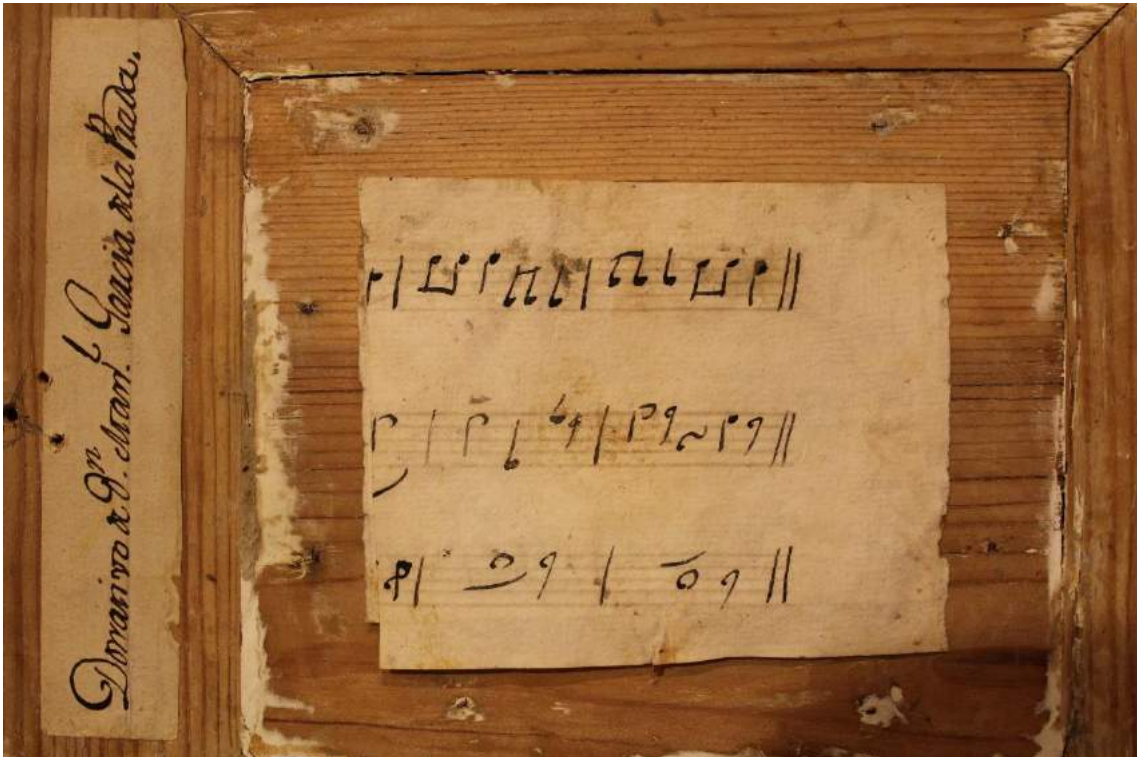 Donativo de Dn. Man.l Garcia dela Prada.